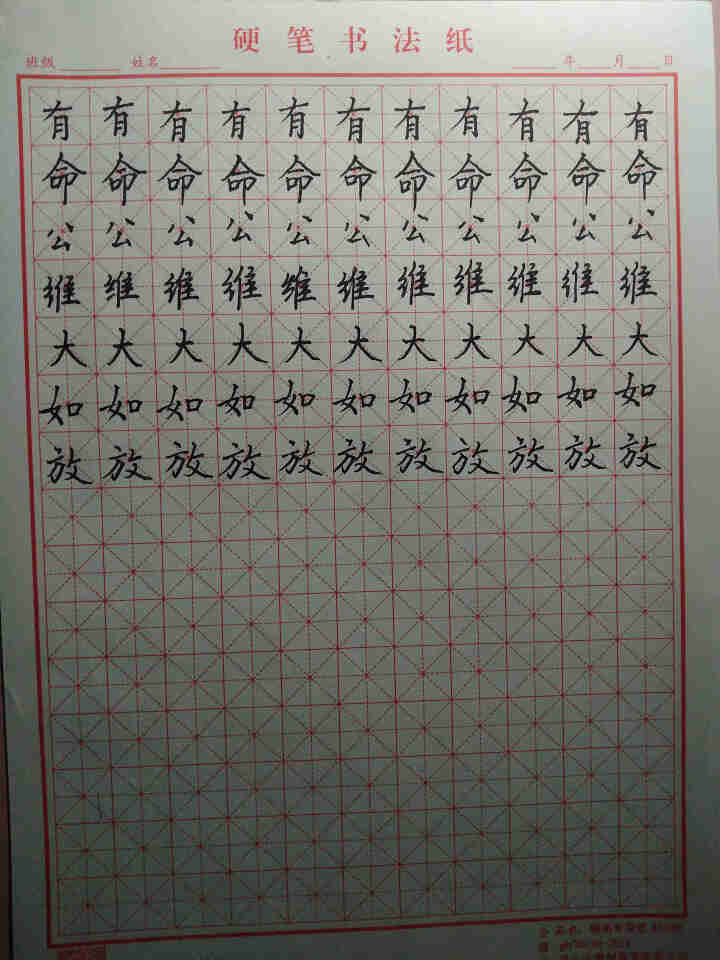 硬笔书法纸
班级 姓名 年 月 日
有有有有有有有有有有有
命命命命命命命命命命命
公公公公公公公公公公公
维维维维维维维维维维维
大大大大大大大大大大大
如如如如如如如如如如如
放放放放放放放放放放放